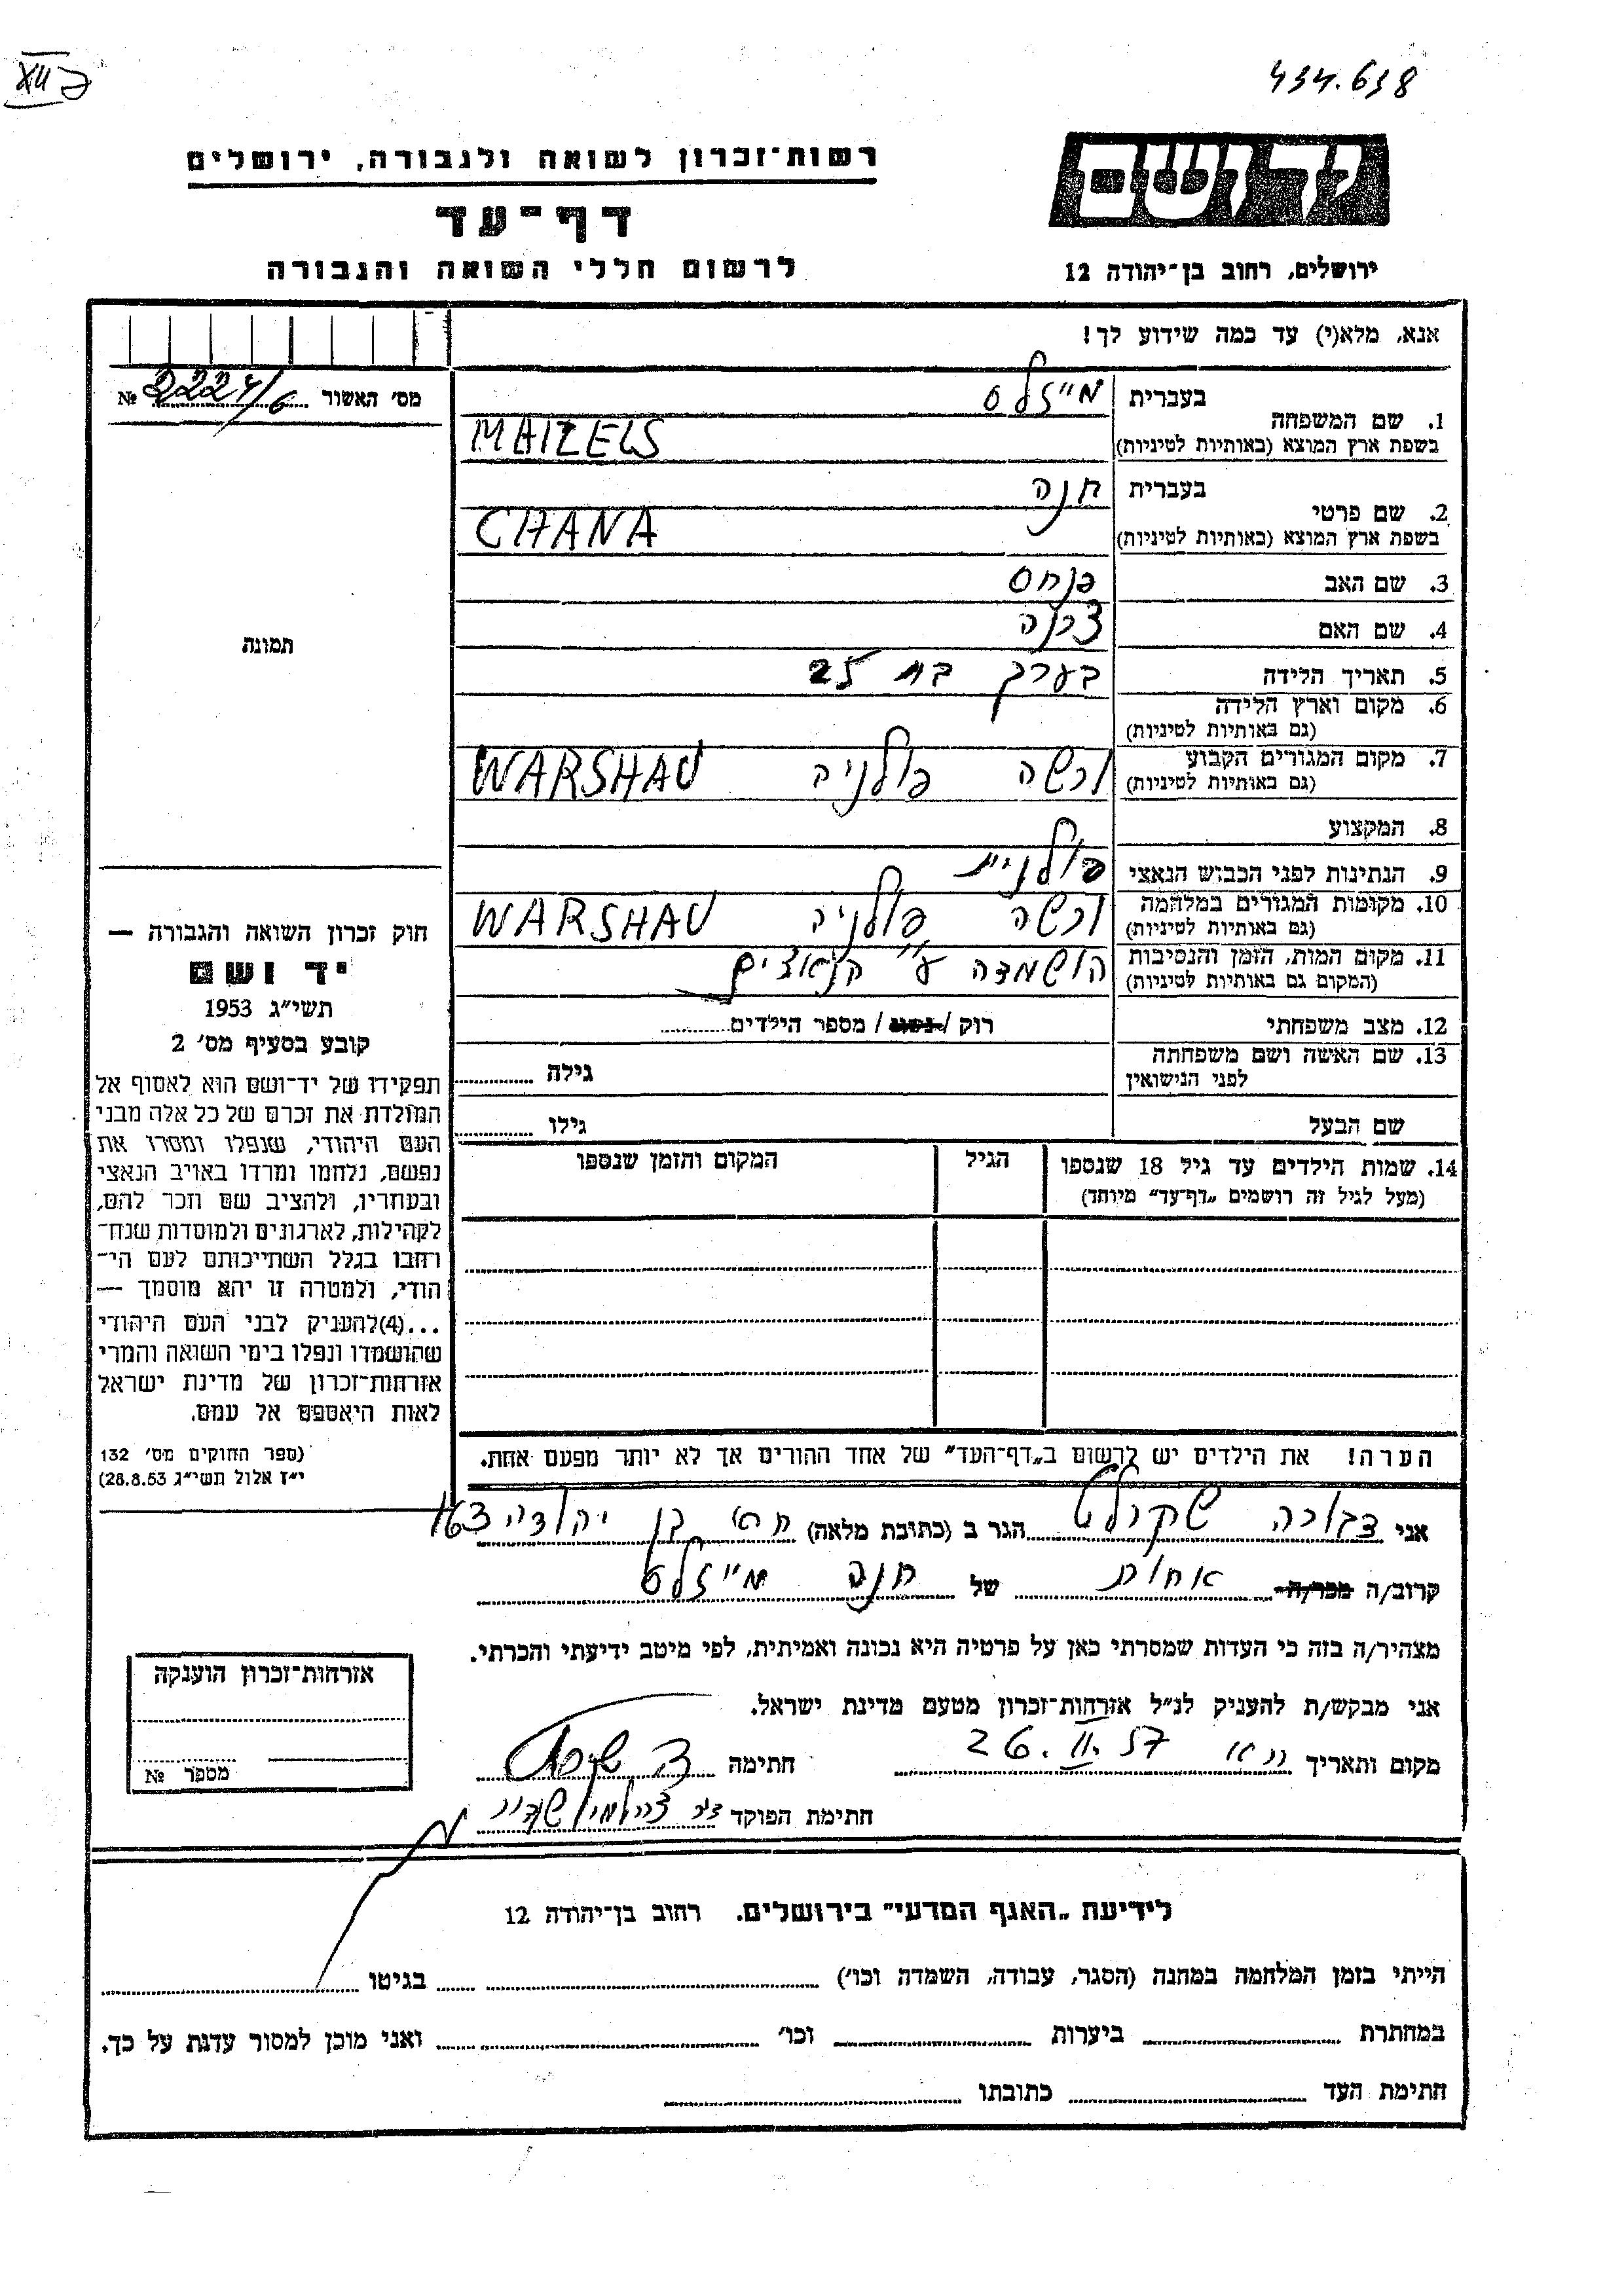 434.638
רשות־זכרון לשואה ולגבורה, ירושלים
יד ושם
דף־עד
לרשום חללי השואה והגבורה
ירושלים, רחוב בן־יהודה 12
אנא, מלא(י) עד כמה שידוע לך!
מס׳ האשור № 2224/6
1. שם המשפחה
בעברית מייזלס
בשפת ארץ המוצא (באותיות לטיניות) MAIZELS
2. שם פרטי
בעברית חנה
בשפת ארץ המוצא (באותיות לטיניות) CHANA
3. שם האב פנחס
4. שם האם
5. תאריך הלידה בערך בת 25
6. מקום וארץ הלידה
(גם באותיות לטיניות)
7. מקום המגורים הקבוע ורשה פולניה WARSHAU
(גם באותיות לטיניות)
8. המקצוע
9. הנתינות לפני הכבוש הנאצי פולנית
10. מקומות המגורים במלחמה ורשה פולניה WARSHAU
(גם באותיות לטיניות)
11. מקום המות, הזמן והנסיבות הושמדה ע״י הנאצים
(המקום גם באותיות לטיניות)
12. מצב משפחתי רוק / נשוי / מספר הילדים
13. שם האשה ושם משפחתה
לפני הנישואין גילה
שם הבעל גילו
14. שמות הילדים עד גיל 18 שנספו הגיל המקום והזמן שנספו
(מעל לגיל זה רושמים „דף־עד״ מיוחד)
הערה! את הילדים יש לרשום ב„דף־העד״ של אחד ההורים אך לא יותר מפעם אחת.
תמונה
חוק זכרון השואה והגבורה —
יד ושם
תשי״ג 1953
קובע בסעיף מס׳ 2
תפקידו של יד־ושם הוא לאסוף אל
המולדת את זכרם של כל אלה מבני
העם היהודי, שנפלו ומסרו את
נפשם, נלחמו ומרדו באויב הנאצי
ובעוזריו, ולהציב שם וזכר להם,
לקהילות, לארגונים ולמוסדות שנח־
רחבו בגלל השתייכותם לעם הי־
הודי, ולמטרה זו יהא מוסמך —
...(4)להעניק לבני העם היהודי
שהושמדו ונפלו בימי השואה והמרי
אזרחות־זכרון של מדינת ישראל
לאות היאספם אל עמם.
(ספר החוקים מס׳ 132
י״ז אלול תשי״ג 28.8.53)
אני דבורה הגר ב (כתובת מלאה) בן יהודה
קרוב/ה מכר/ה אחות של חנה מייזלס
מצהיר/ה בזה כי העדות שמסרתי כאן על פרטיה היא נכונה ואמיתית, לפי מיטב ידיעתי והכרתי.
אני מבקש/ת להעניק לנ״ל אזרחות־זכרון מטעם מדינת ישראל.
מקום ותאריך 26.II.57 חתימה
חתימת הפוקד
אזרחות־זכרון הוענקה
מספר №
לידיעת „האגף המדעי״ בירושלים. רחוב בן־יהודה 12
הייתי בזמן המלחמה במחנה (הסגר, עבודה, השמדה וכו׳) בגיטו
במחתרת ביערות וכו׳ ואני מוכן למסור עדות על כך.
חתימת העד כתובתו